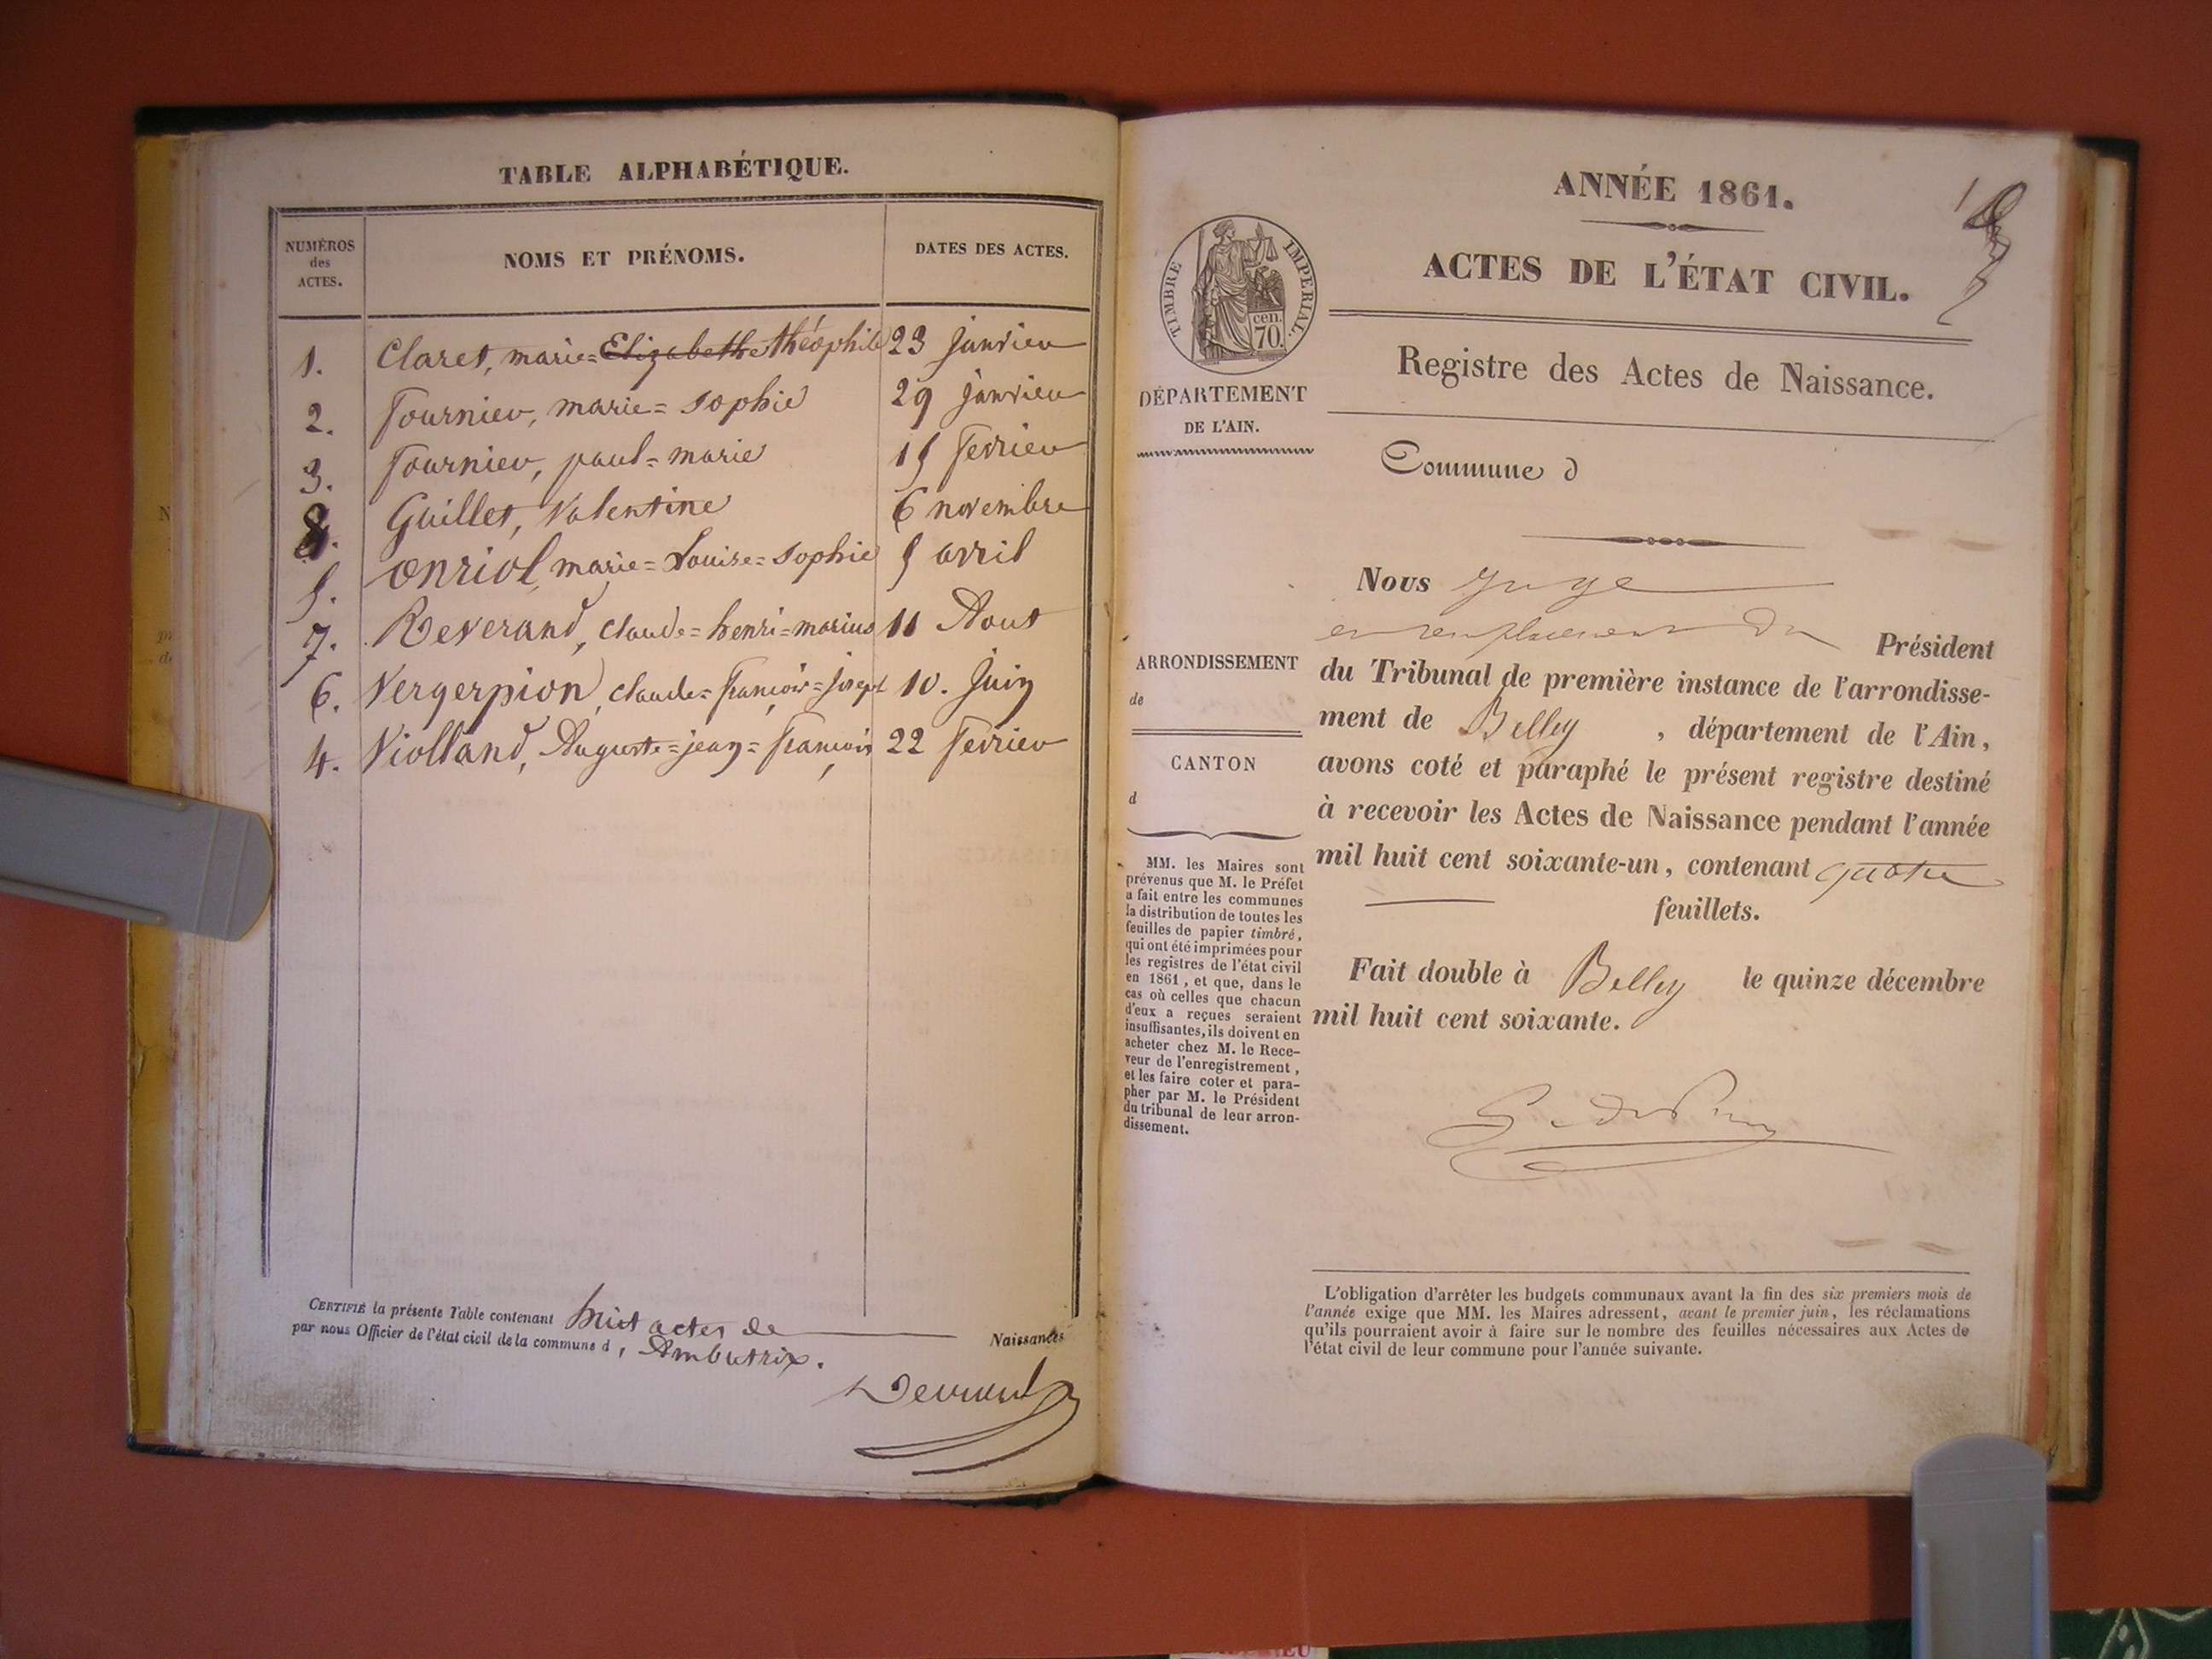 TABLE ALPHABÉTIQUE.
NUMÉROS des ACTES. NOMS ET PRÉNOMS. DATES DES ACTES.
1. Claret, marie= Elizabethe théophile 23 Janvier
2. Fournier, marie= sophie 29 janvier
3. Fournier, paul= marie 15 fevrier
8. Guillet, Valentine 6 novembre
5. Onriol, marie= Louise= sophie 5 avril
7. Reverand, claude= henri= marius 11 Aout
6. Vergerpion, claude= françois= joseph 10. Juin
4. Violland, Auguste= jean= françois 22 fevrier
CERTIFIÉ la présente Table contenant huit actes de Naissances
par nous Officier de l'état civil de la commune d, Ambutrix.
ANNÉE 1861.
1
ACTES DE L'ÉTAT CIVIL.
TIMBRE IMPERIAL.
cen.
70.
Registre des Actes de Naissance.
DÉPARTEMENT
DE L'AIN.
Commune d
ARRONDISSEMENT
de
CANTON
d
MM. les Maires sont
prévenus que M. le Préfet
a fait entre les communes
la distribution de toutes les
feuilles de papier timbré,
qui ont été imprimées pour
les registres de l'état civil
en 1861, et que, dans le
cas où celles que chacun
d'eux a reçues seraient
insuffisantes, ils doivent en
acheter chez M. le Rece-
veur de l'enregistrement,
et les faire coter et para-
pher par M. le Président
du tribunal de leur arron-
dissement.
Nous juge
en remplacement du Président
du Tribunal de première instance de l'arrondisse-
ment de Belley, département de l'Ain,
avons coté et paraphé le présent registre destiné
à recevoir les Actes de Naissance pendant l'année
mil huit cent soixante-un, contenant quatre
feuillets.
Fait double à Belley le quinze décembre
mil huit cent soixante.
L'obligation d'arrêter les budgets communaux avant la fin des six premiers mois de
l'année exige que MM. les Maires adressent, avant le premier juin, les réclamations
qu'ils pourraient avoir à faire sur le nombre des feuilles nécessaires aux Actes de
l'état civil de leur commune pour l'année suivante.